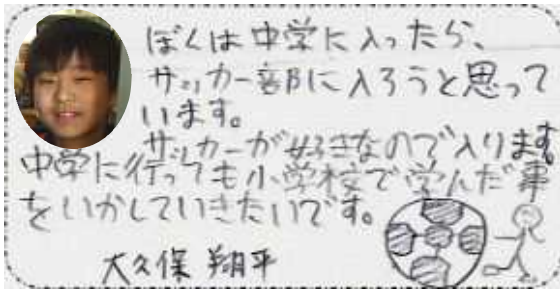 ぼくは中学に入ったら、
サッカー部に入ろうと思って
います。
サッカーが好きなので入ります。
中学に行っても小学校で学んだ事
をいかしていきたいです。
大久保 翔平